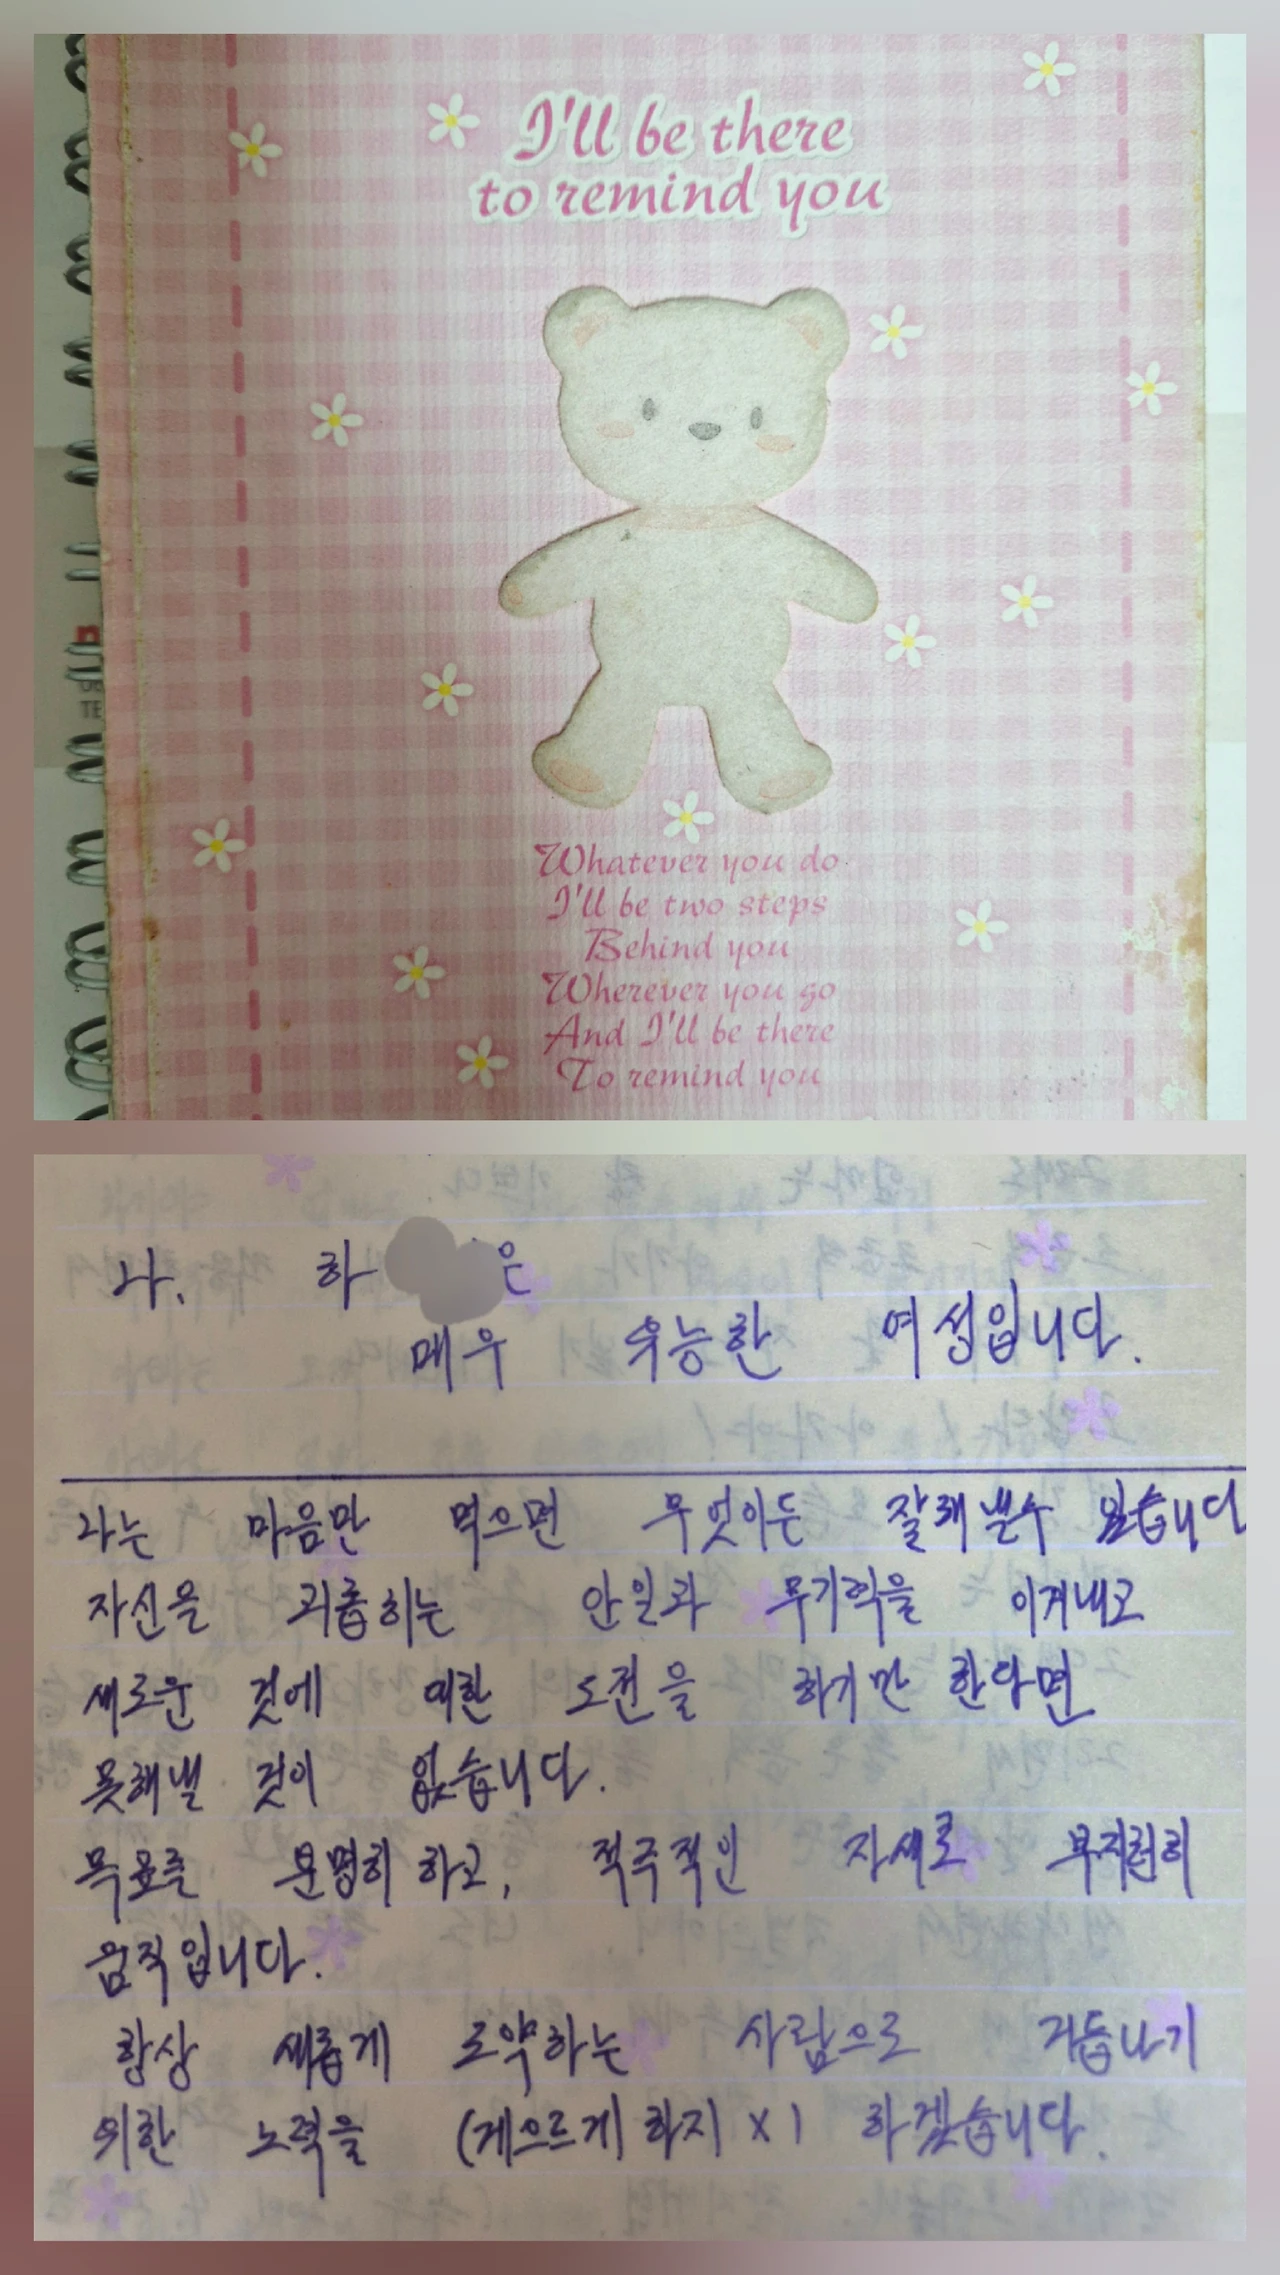 I'll be there
to remind you
Whatever you do
I'll be two steps
Behind you
Wherever you go
And I'll be there
To remind you
나. 하 은
매우 유능한 여성입니다.
나는 마음만 먹으면 무엇이든 잘해낼수 있습니다
자신을 괴롭히는 안일과 무기력을 이겨내고
새로운 것에 대한 도전을 하기만 한다면
못해낼 것이 없습니다.
목표를 분명히 하고, 적극적인 자세로 부지런히
움직입니다.
항상 새롭게 도약하는 사람으로 거듭나기
위한 노력을 (게으르게 하지 x) 하겠습니다.